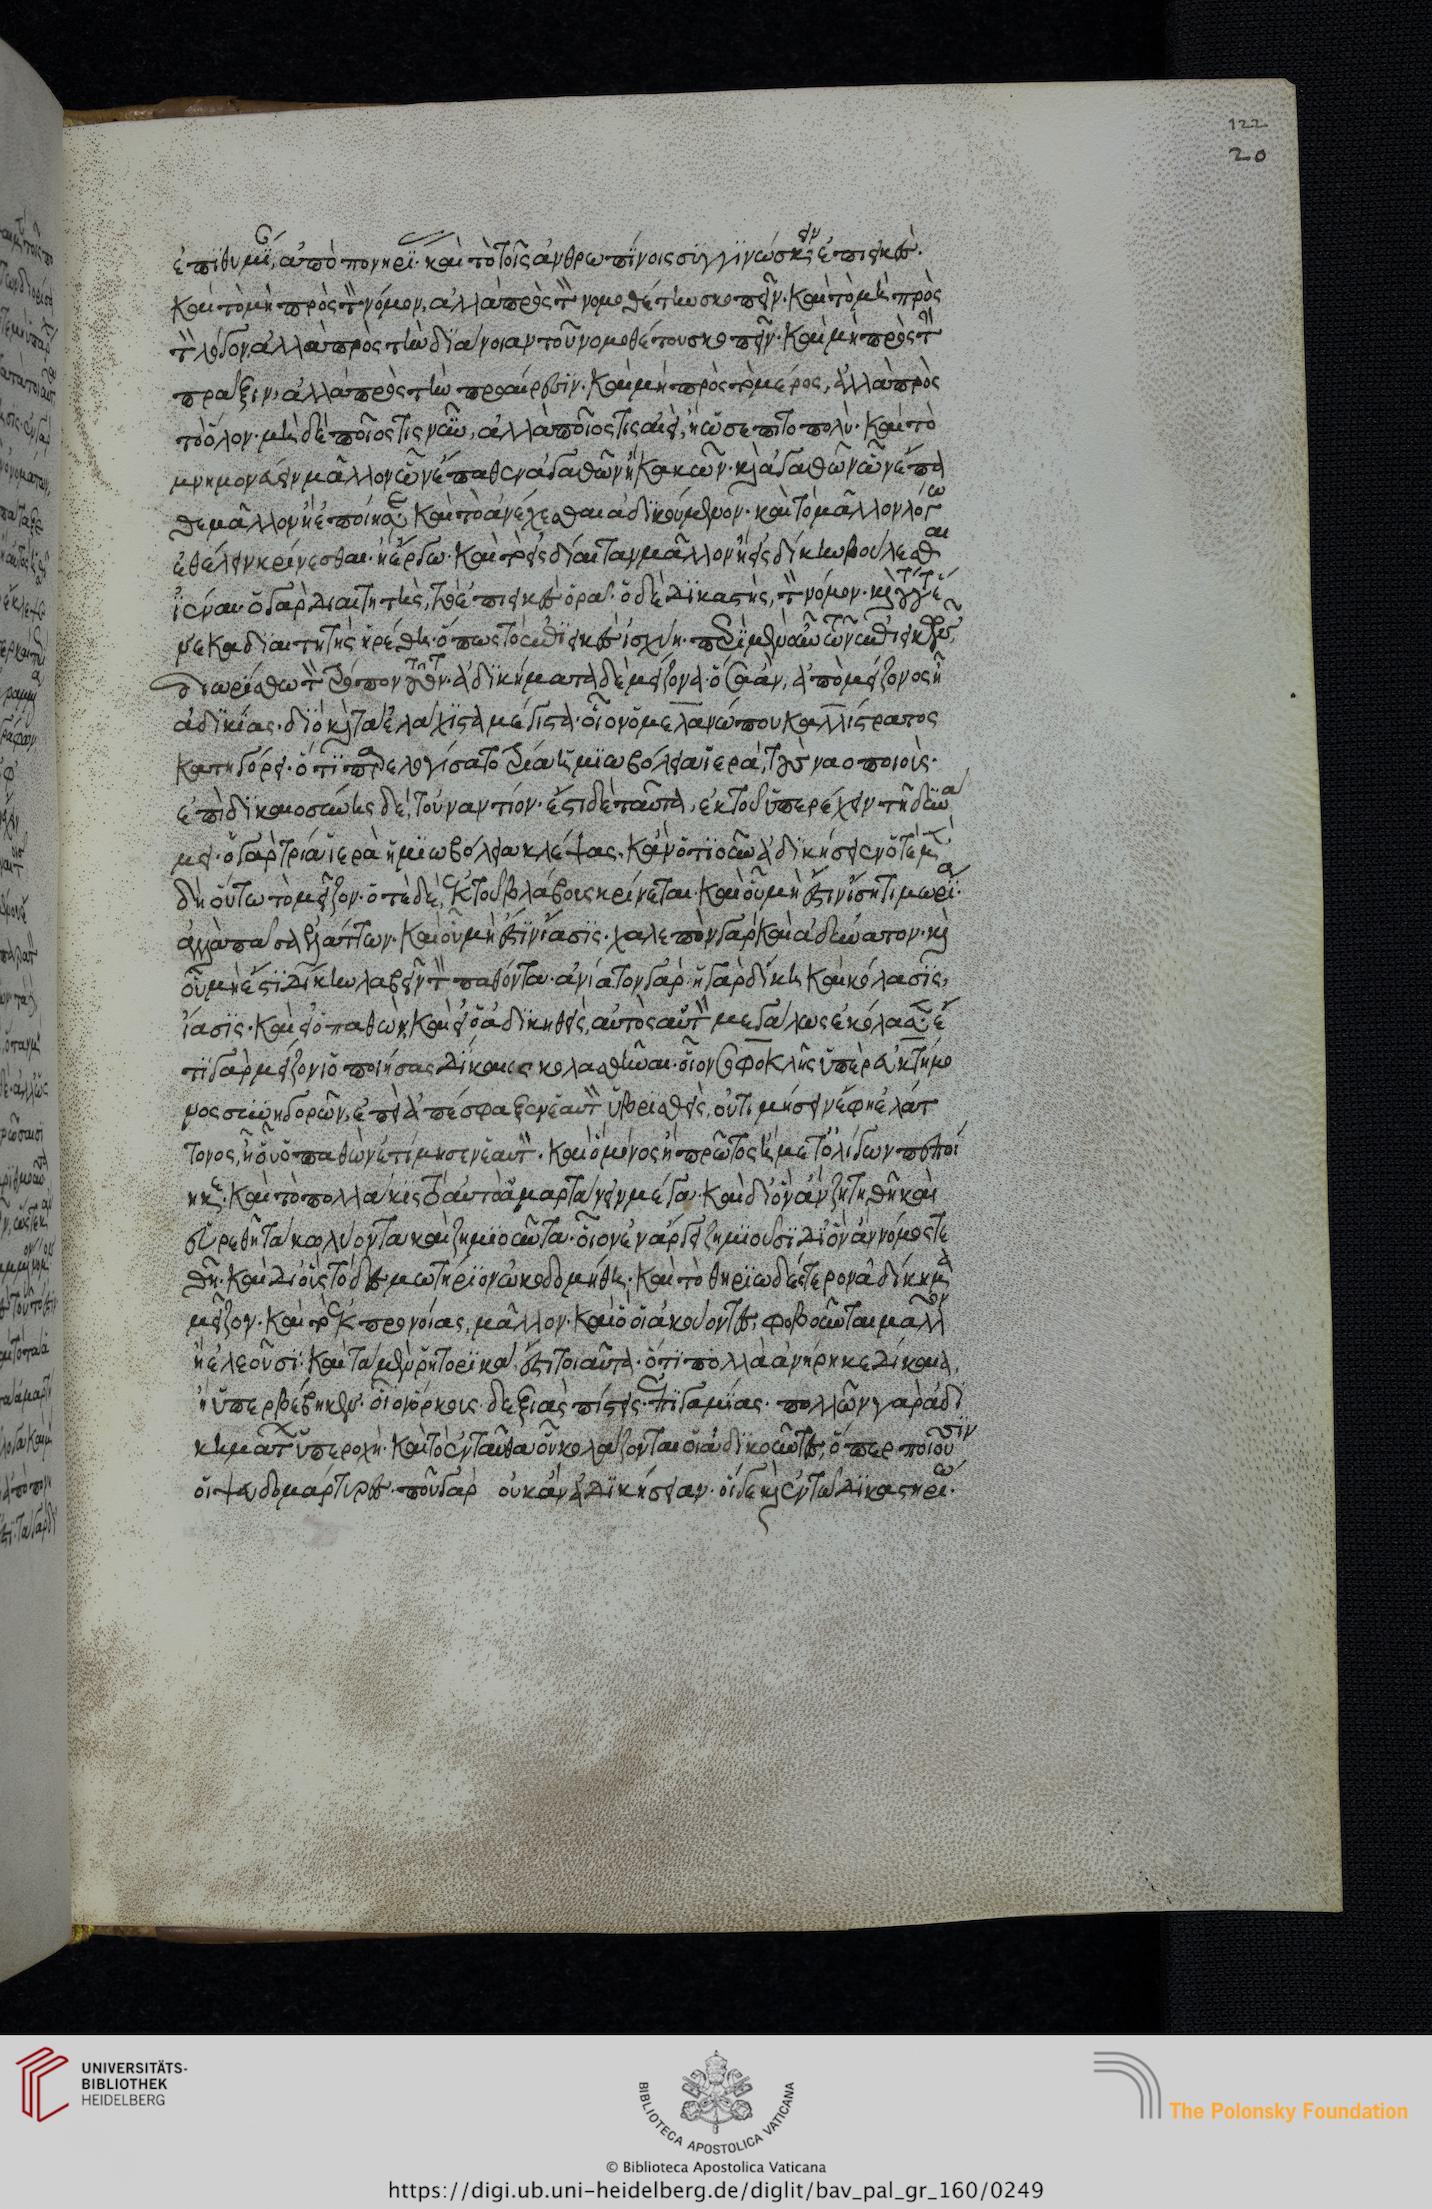 122
20
ἐπιθυμί, ἀπὸ πονηρί· καὶ τὸ τοῖς ἀνθρωπίνοις συγγινώσκειν ἐπιεικὲς.
καὶ τὸ μὴ πρὸς τὸν νόμον, ἀλλὰ πρὸς τὸν νομοθέτην σκοπεῖν. καὶ τὸ μὴ πρὸς
τὸν λόγον, ἀλλὰ πρὸς τὴν διάνοιαν τοῦ νομοθέτου σκοπεῖν. καὶ μὴ πρὸς τὴν
πρᾶξιν, ἀλλὰ πρὸς τὴν προαίρεσιν. καὶ μὴ πρὸς τὸ μέρος, ἀλλὰ πρὸς
τὸ ὅλον. μηδὲ ποῖος τις νῦν, ἀλλὰ ποῖος τις ἀεὶ, ἢ ὡς ἐπιτοπολὺ. καὶ τὸ
μνημονεύειν μᾶλλον ὧν ἔπαθεν ἀγαθῶν ἢ κακῶν. καὶ ἀγαθῶν ὧν ἔπα
θε μᾶλλον ἢ ἐποίησε. καὶ τὸ ἀνέχεσθαι ἀδικούμενον. καὶ τὸ μᾶλλον λόγω
ἐθέλειν κρίνεσθαι. ἢ ἔργω. καὶ τὸ εἰς δίαιταν μᾶλλον ἢ εἰς δίκην βούλεσθαι
ἰέναι. ὁ γὰρ διαιτητὴς, τὸ ἐπιεικὲς ὁρᾶ. ὁ δὲ δικαστὴς, τὸν νόμον. καὶ τούτου ἕ
νεκα διαιτητὴς εὑρέθη. ὅπως τὸ ἐπιεικὲς ἰσχύη. περὶ μὲν οὖν τῶν ἐπιεικῶν,
διωρίσθω τὸν τρόπον τοῦτον. ἀδικήματα δὲ μείζονα. ὅσα ἂν, ἀπὸ μείζονος ἦ
ἀδικίας. διὸ καὶ τὰ ἐλάχιστα μέγιστα. οἷον ὃ μελανώπου καλλίστρατος
κατηγόρει. ὅτι παρελογίσατο τρία ἡμιωβόλεια ἱερὰ, τοὺς ναοποιοὺς.
ἐπὶ δικαιοσύνης δὲ, τοὐναντίον. ἔστι δὲ ταῦτα, ἐκ τοῦ ὑπερέχειν τῆ δυνά
μει. ὁ γὰρ τρία ἱερὰ ἡμιωβόλεια κλέψας. κἂν ὁτιοῦν ἀδικήσειεν ὁτὲ μὲν
δὴ οὕτω τὸ μεῖζον. ὁτὲ δὲ, ἐκ τοῦ βλάβους κρίνεται. καὶ οὗ μὴ ἔστιν ἴση τιμωρία.
ἀλλὰ πᾶσα ἐλάττων. καὶ οὗ μὴ ἔστιν ἴασις. χαλεπὸν γὰρ καὶ ἀδύνατον. καὶ
οὗ μὴ ἔστι δίκην λαβεῖν τὸν παθόντα. ἀνίατον γάρ. ἡ γὰρ δίκη καὶ κόλασις,
ἴασις. καὶ εἰ ὁ παθὼν, καὶ εἰ ὁ ἀδικηθεὶς, αὐτὸς αὑτὸν μεγάλως ἐκόλασεν. ἔ
τι γὰρ μείζονι ὁ ποιήσας δίκαιος κολασθῆναι. οἷον σοφοκλῆς ὑπὲρ εὐκτήμο
νος συνηγορῶν, ἐπεὶ ἀπέσφαξεν ἑαυτὸν ὑβρισθεὶς, οὐ τιμήσειν ἔφη ἐλάτ
τονος, ἢ οὗ ὁ παθὼν ἐτίμησεν ἑαυτὸν. καὶ ὃ μόνος ἢ πρῶτος ἢ μετ' ὀλίγων πεποί
ηκε. καὶ τὸ πολλάκις τὸ αὐτὸ ἁμαρτάνειν μέγα. καὶ δι' ὃ ἂν ἀνζητηθῆ καὶ
εὑρεθῆ τὰ κωλύοντα καὶ ζημιοῦντα. οἷον ἐν ἄργει ζημιοῦσι δι' ὃν ἂν νόμος τε
θῆ. καὶ δι' οἷς τὸ δεσμωτήριον ὠκοδομήθη. καὶ τὸ θηριωδέστερον ἀδίκημα
μεῖζον. καὶ τὸ ἐκ προνοίας, μᾶλλον. καὶ ὃ οἱ ἀκούοντες, φοβοῦνται μᾶλλον
ἢ ἐλεοῦσι. καὶ τὰ μὲν ῥητορικά, ἐστι τοιαῦτα. ὅτι πολλὰ ἀνήρηκε δίκαια,
ἢ ὑπερβέβηκεν. οἷον ὅρκους. δεξιὰς πίστεις. ἐπιγαμίας. πολλῶν γὰρ ἀδι
κημάτων ὑπεροχὴ. καὶ τὸ ἐνταῦθα οὗ κολάζονται οἱ ἀδικοῦντες, ὅπερ ποιοῦσιν
οἱ ψευδομάρτυρες. ποῦ γὰρ οὐκ ἂν ἀδικήσειαν. εἴγε καὶ ἐν τῶ δικαστηρίω.
UNIVERSITÄTS-
BIBLIOTHEK
HEIDELBERG
BIBLIOTECA APOSTOLICA VATICANA
The Polonsky Foundation
© Biblioteca Apostolica Vaticana
https://digi.ub.uni-heidelberg.de/diglit/bav_pal_gr_160/0249